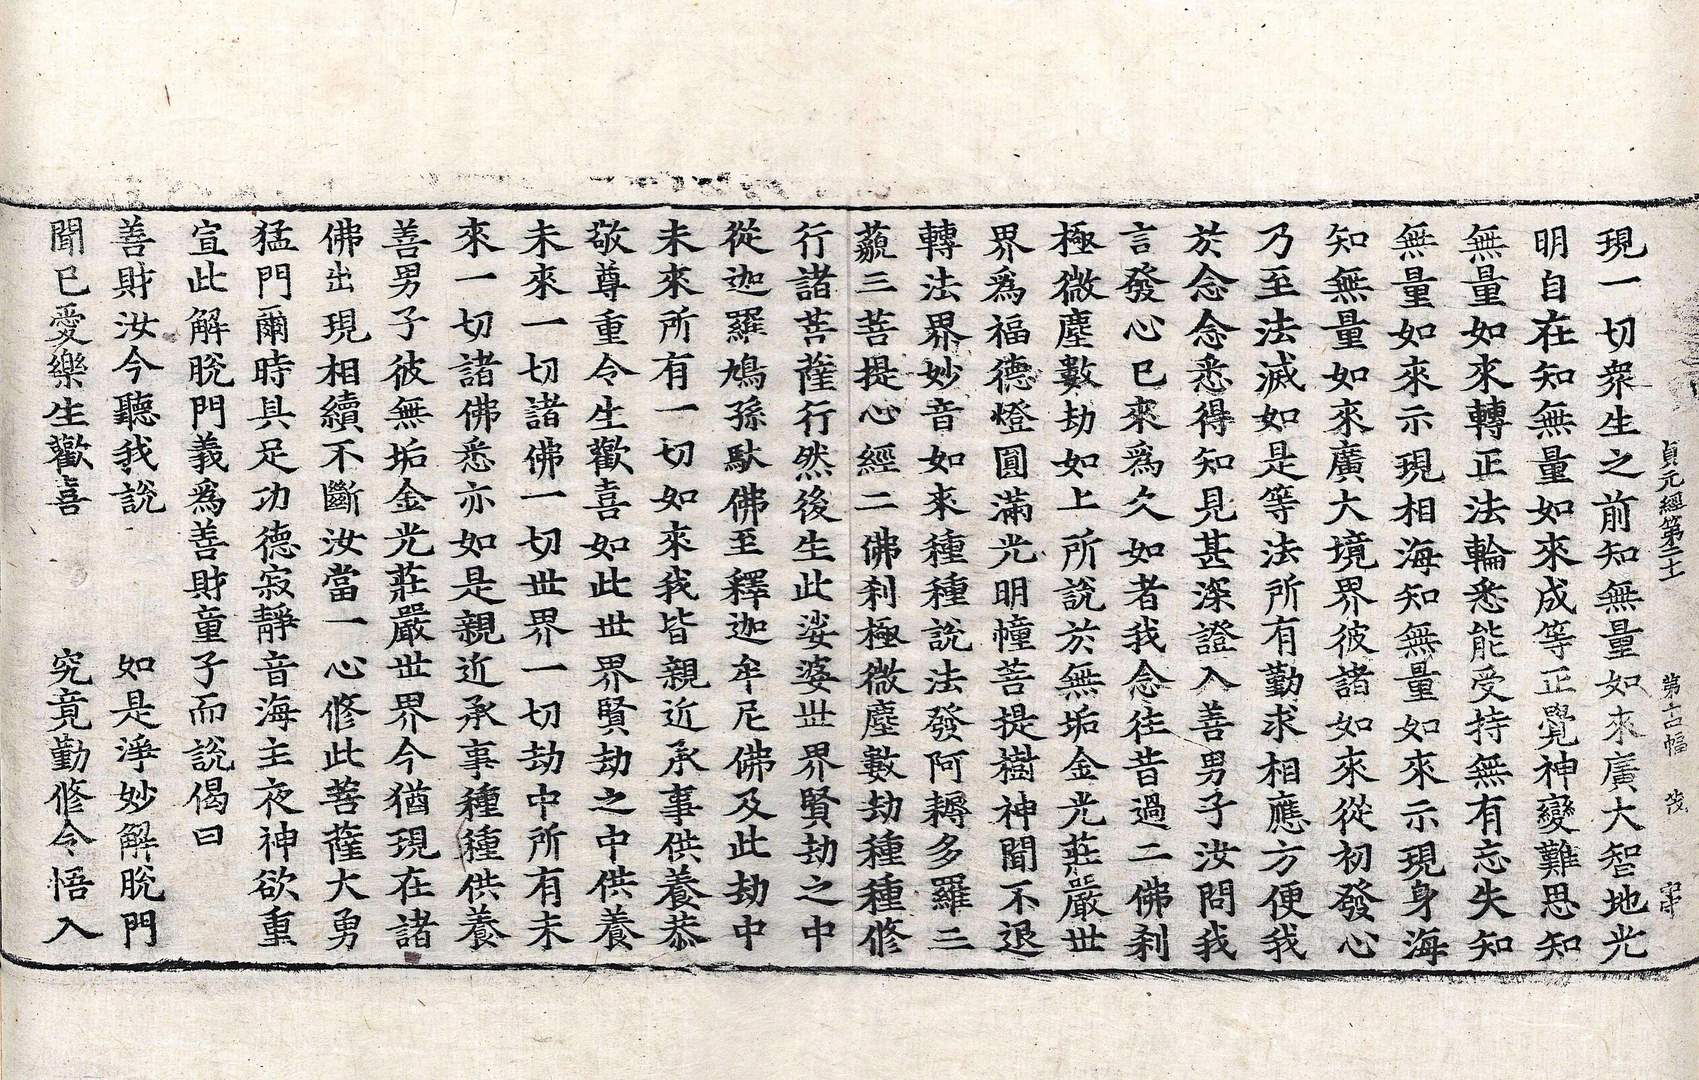 貞元經第二十 第十六幅 茂 宇
現一切衆生之前知無量如來廣大智地光
明自在知無量如來成等正覺神變難思知
無量如來轉正法輪悉能受持無有忘失知
無量如來示現相海知無量如來示現身海
知無量如來廣大境界彼諸如來從初發心
乃至法滅如是等法所有勤求相應方便我
於念念悉得知見甚深證入善男子汝問我
言發心已來爲久如者我念往昔過二佛刹
極微塵數劫如上所說於無垢金光莊嚴世
界爲福德燈圓滿光明幢菩提樹神聞不退
轉法界妙音如來種種說法發阿耨多羅三
藐三菩提心經二佛刹極微塵數劫種種修
行諸菩薩行然後生此娑婆世界賢劫之中
從迦羅鳩孫馱佛至釋迦牟尼佛及此劫中
未來所有一切如來我皆親近承事供養恭
敬尊重令生歡喜如此世界賢劫之中供養
未來一切諸佛一切世界一切劫中所有未
來一切諸佛悉亦如是親近承事種種供養
善男子彼無垢金光莊嚴世界今猶現在諸
佛出現相續不斷汝當一心修此菩薩大勇
猛門爾時具足功德寂靜音海主夜神欲重
宣此解脫門義爲善財童子而說偈曰
善財汝今聽我說 如是淨妙解脫門
聞已愛樂生歡喜 究竟勤修令悟入